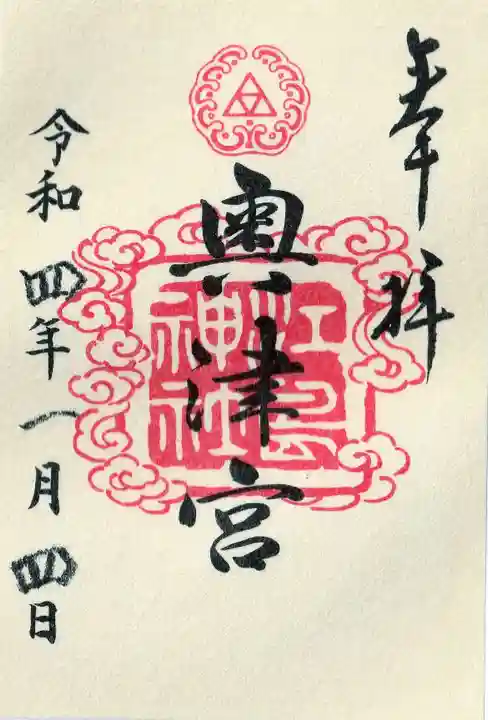 奉拝
奥津宮
江島
神社
令和四年一月四日